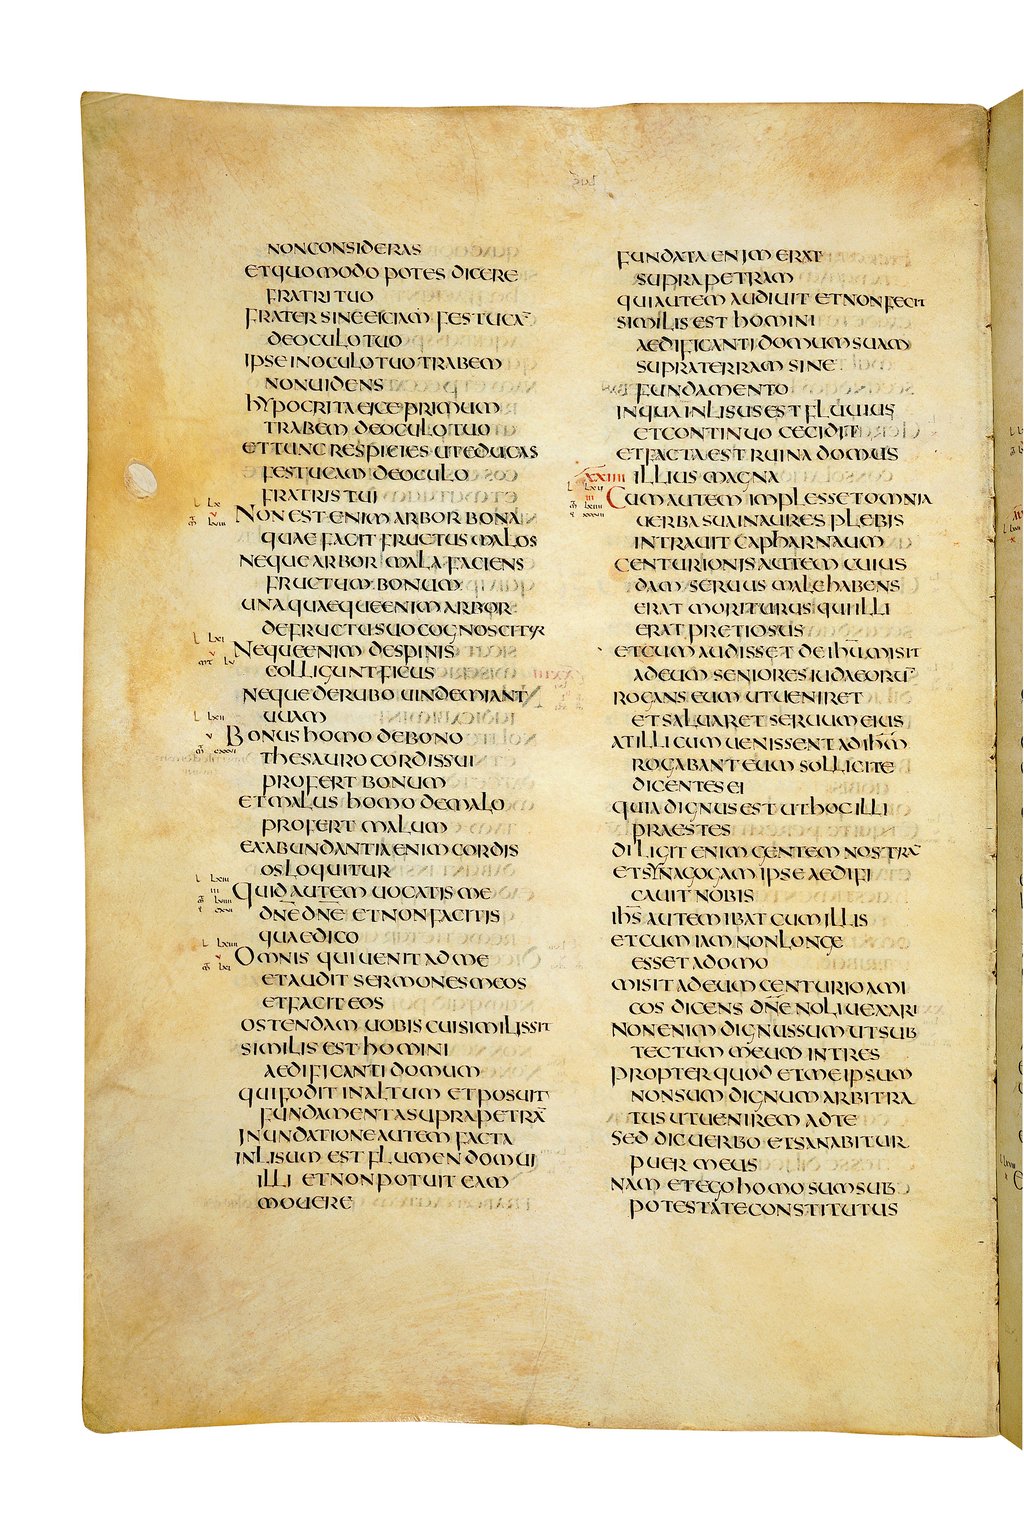 LUC
NONCONSIDERAS
ETQUOMODO POTES DICERE
FRATRI TUO
FRATER SINE EICIAM FESTUCĀ
DEOCULO TUO
IPSE INOCULO TUO TRABEM
NONUIDENS
HYPOCRITA EICE PRIMUM
TRABEM DEOCULO TUO
ET TUNC RESPICIES UTEDUCAS
FESTUCAM DEOCULO
FRATRIS TUI
NON EST ENIM ARBOR BONA
QUAE FACIT FRUCTUS MALOS
NEQUE ARBOR MALA FACIENS
FRUCTUM BONUM
UNAQUAEQUE ENIM ARBOR
DEFRUCTU SUO COGNOSCITUR
NEQUE ENIM DESPINIS
COLLIGUNT FICUS
NEQUE DERUBO UINDEMIANT
UUAM
BONUS HOMO DEBONO
THESAURO CORDIS SUI
PROFERT BONUM
ET MALUS HOMO DEMALO
PROFERT MALUM
EXABUNDANTIA ENIM CORDIS
OS LOQUITUR
QUID AUTEM UOCATIS ME
DN̄E DN̄E ET NON FACITIS
QUAE DICO
OMNIS QUI UENIT AD ME
ET AUDIT SERMONES MEOS
ET FACIT EOS
OSTENDAM UOBIS CUI SIMILIS SIT
SIMILIS EST HOMINI
AEDIFICANTI DOMUM
QUI FODIT INALTUM ET POSUIT
FUNDAMENTA SUPRA PETRĀ
INUNDATIONE AUTEM FACTA
INLISUM EST FLUMEN DOMUI
ILLI ET NON POTUIT EAM
MOUERE
FUNDATA ENIM ERAT
SUPRA PETRAM
QUI AUTEM AUDIUIT ET NON FECIT
SIMILIS EST HOMINI
AEDIFICANTI DOMUM SUAM
SUPRA TERRAM SINE
FUNDAMENTO
IN QUA INLISUS EST FLUUIUS
ET CONTINUO CECIDIT
ET FACTA EST RUINA DOMUS
XXIIII ILLIUS MAGNA
CUM AUTEM IMPLESSET OMNIA
UERBA SUA INAURES PLEBIS
INTRAUIT CAPHARNAUM
CENTURIONIS AUTEM CUIUS
DAM SERUUS MALE HABENS
ERAT MORITURUS QUI ILLI
ERAT PRETIOSUS
ET CUM AUDISSET DE IHŪ MISIT
AD EUM SENIORES IUDAEORŪ
ROGANS EUM UT UENIRET
ET SALUARET SERUUM EIUS
AT ILLI CUM UENISSENT AD IHM̄
ROGABANT EUM SOLLICITE
DICENTES EI
QUIA DIGNUS EST UT HOC ILLI
PRAESTES
DILIGIT ENIM GENTEM NOSTRĀ
ET SYNAGOGAM IPSE AEDIFI
CAUIT NOBIS
IHS̄ AUTEM IBAT CUM ILLIS
ET CUM IAM NON LONGE
ESSET A DOMO
MISIT AD EUM CENTURIO AMI
COS DICENS DN̄E NOLI UEXARI
NON ENIM DIGNUS SUM UT SUB
TECTUM MEUM INTRES
PROPTER QUOD ET ME IPSUM
NON SUM DIGNUM ARBITRA
TUS UT UENIREM AD TE
SED DIC UERBO ET SANABITUR
PUER MEUS
NAM ET EGO HOMO SUM SUB
POTESTATE CONSTITUTUS